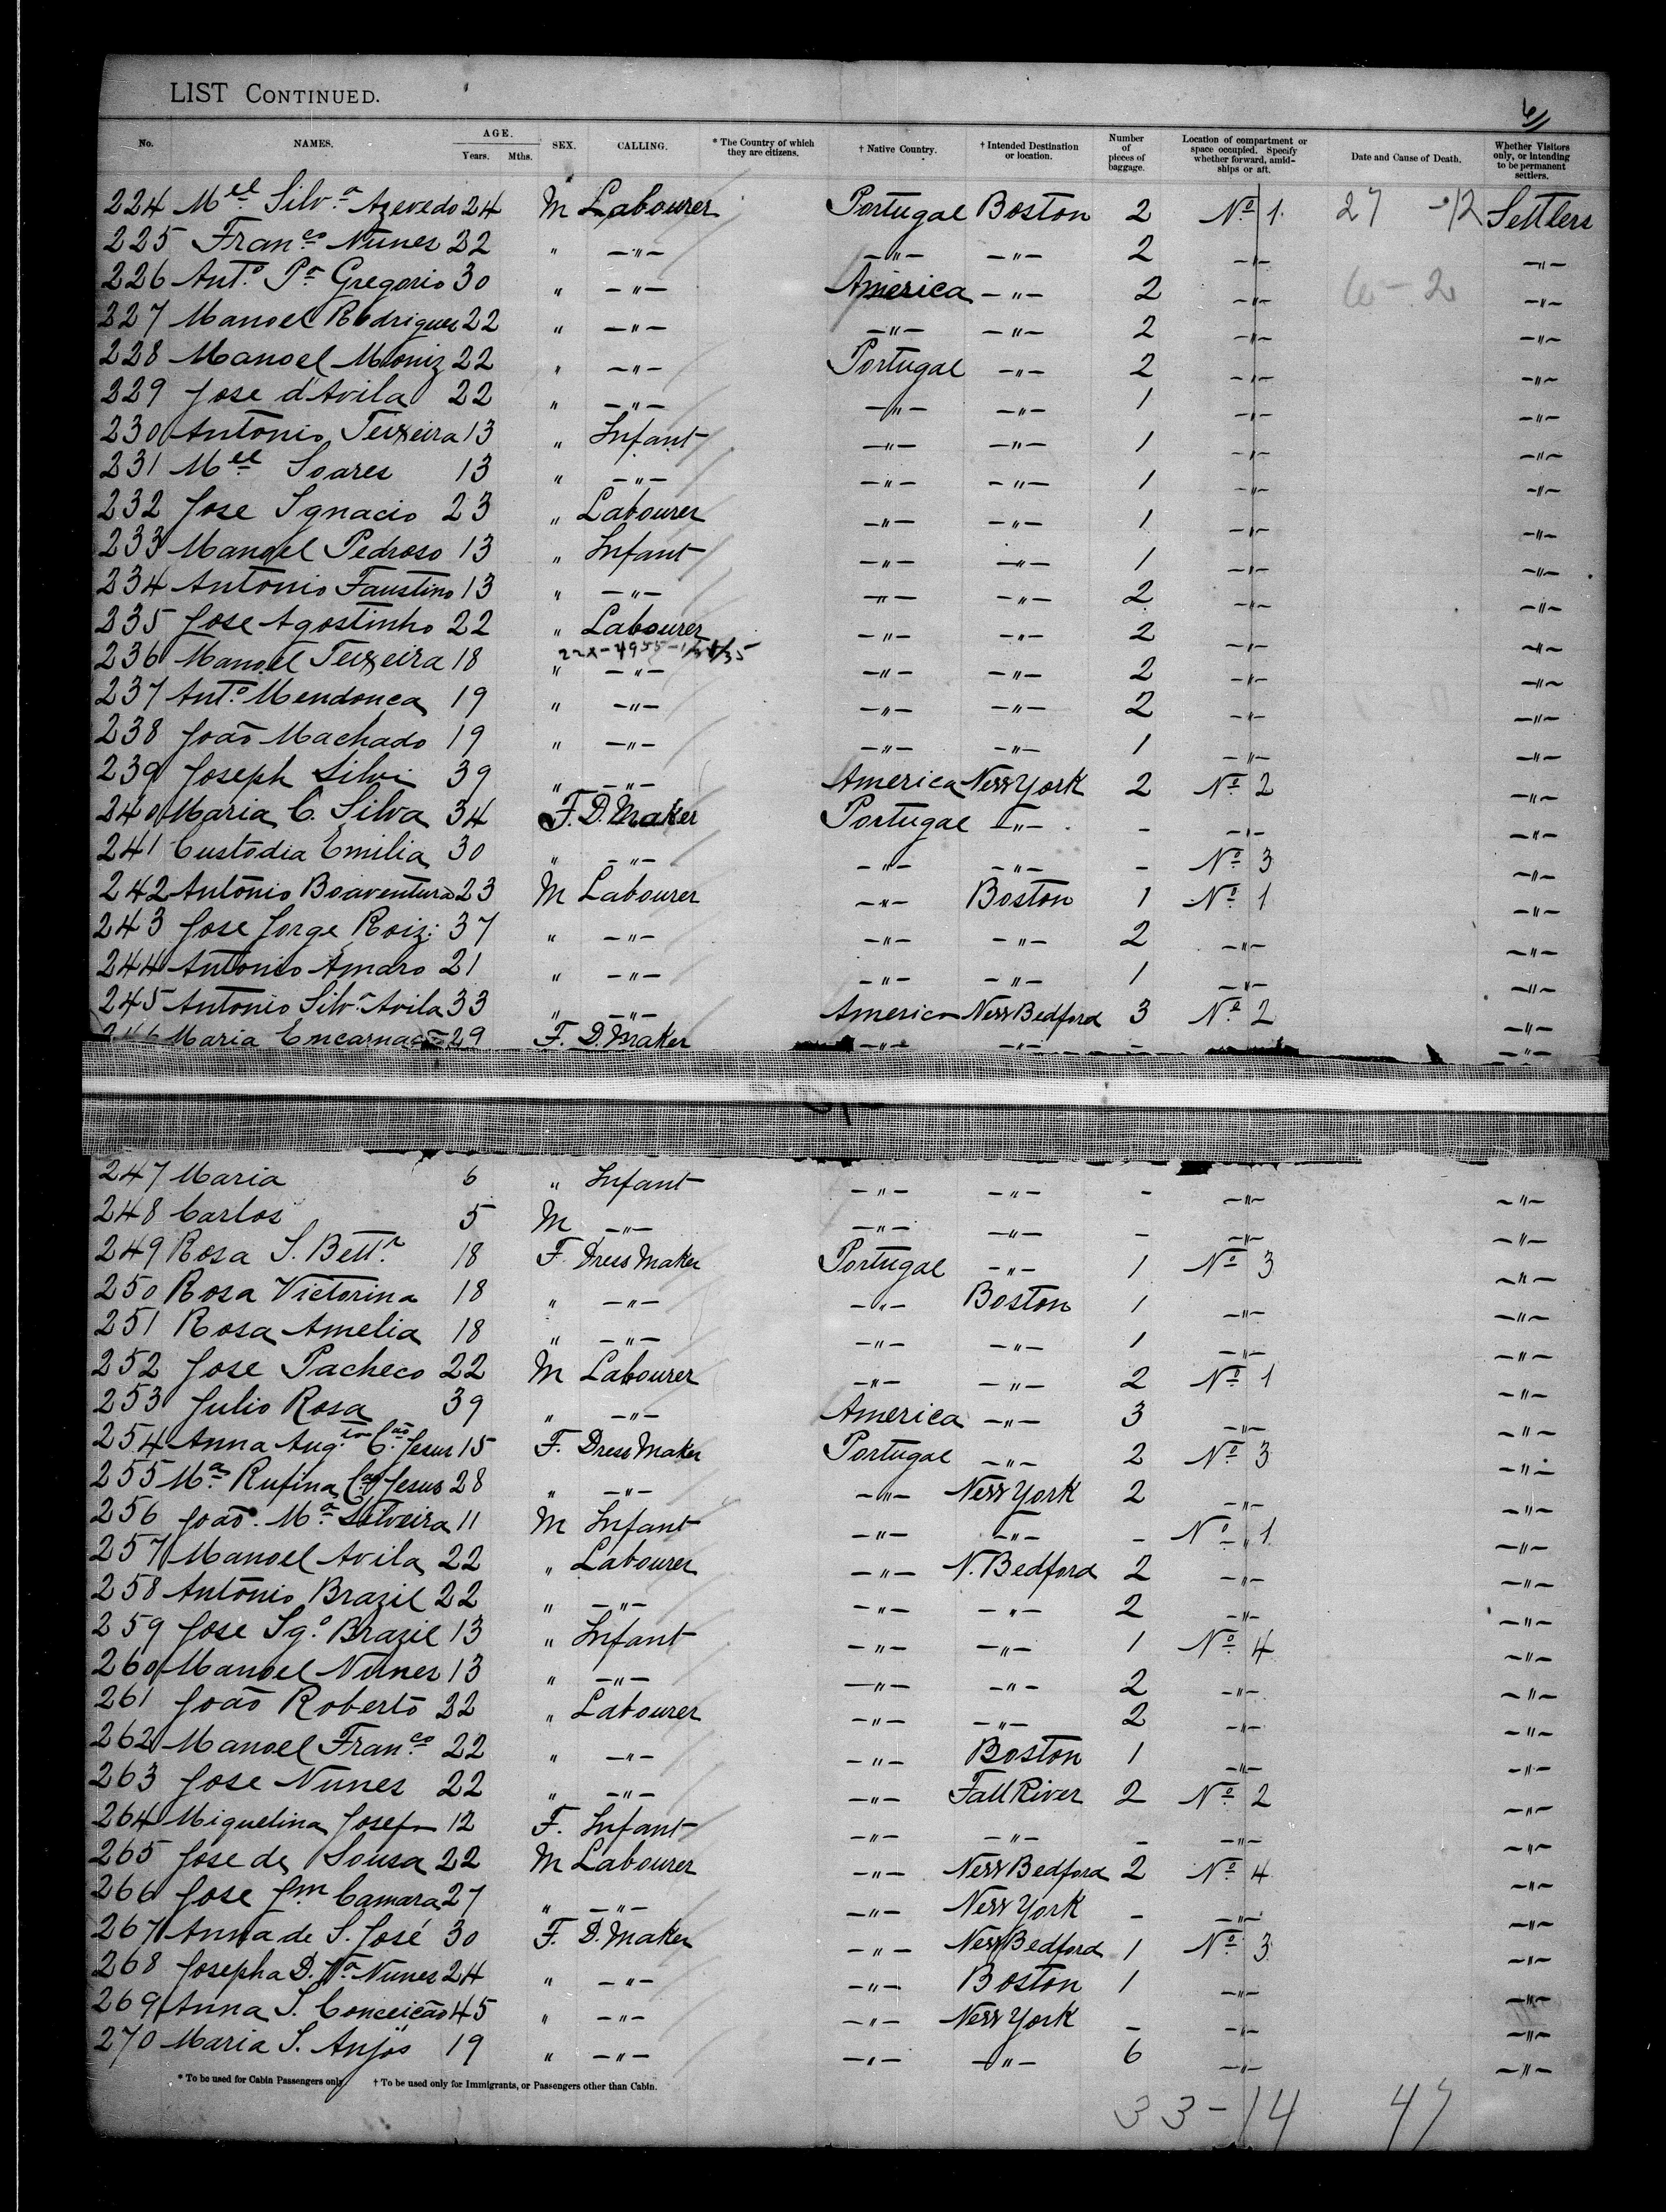 LIST CONTINUED.
6
No. NAMES. AGE. Years. Mths. SEX. CALLING. * The Country of which they are citizens. † Native Country. † Intended Destination or location. Number of pieces of baggage. Location of compartment or space occupied. Specify whether forward, amidships or aft. Date and Cause of Death. Whether Visitors only, or intending to be permanent settlers.
224 Mel Silva Azevedo 24 M Labourer Portugal Boston 2 No 1 27 -12 Settlers
225 Franco Nunes 22 " -"- -"- -"- 2 -"- -"-
226 Anto Pa Gregorio 30 " -"- America -"- 2 -"- 6-2 -"-
227 Manoel Rodrigues 22 " -"- -"- -"- 2 -"- -"-
228 Manoel Moniz 22 " -"- Portugal -"- 2 -"- -"-
229 Jose d'Avila 22 " -"- -"- -"- 1 -"- -"-
230 Antonio Teixeira 13 " Infant -"- -"- 1 -"- -"-
231 Mel Soares 13 " -"- -"- -"- 1 -"- -"-
232 Jose Ignacio 23 " Labourer -"- -"- 1 -"- -"-
233 Manoel Pedroso 13 " Infant -"- -"- 1 -"- -"-
234 Antonio Faustino 13 " -"- -"- -"- 2 -"- -"-
235 Jose Agostinho 22 " Labourer -"- -"- 2 -"- -"-
236 Manoel Teixeira 18 " -"- -"- -"- 2 -"- -"-
237 Anto Mendonca 19 " -"- -"- -"- 2 -"- -"-
238 João Machado 19 " -"- -"- -"- 1 -"- -"-
239 Joseph Silvi 39 " -"- America New York 2 No 2 -"-
240 Maria C. Silva 34 F. D. Maker Portugal -"- - -"- -"-
241 Custodia Emilia 30 " -"- -"- -"- - No 3 -"-
242 Antonio Boaventura 23 M Labourer -"- Boston 1 No 1 -"-
243 Jose Jorge Roiz: 37 " -"- -"- -"- 2 -"- -"-
244 Antonio Amaro 21 " -"- -"- -"- 1 -"- -"-
245 Antonio Silva Avila 33 " -"- America New Bedford 3 No 2 -"-
246 Maria Encarnação 29 F. D. Maker -"- -"- - -"-
247 Maria 6 " Infant -"- -"- - -"- -"-
248 Carlos 5 M -"- -"- -"- - -"- -"-
249 Rosa S. Bettr 18 F. Dress Maker Portugal -"- 1 No 3 -"-
250 Rosa Victorina 18 " -"- -"- Boston 1 -"- -"-
251 Rosa Amelia 18 " -"- -"- -"- 1 -"- -"-
252 Jose Pacheco 22 M Labourer -"- -"- 2 No 1 -"-
253 Julio Rosa 39 " -"- America -"- 3 -"- -"-
254 Anna Augta Cão Jesus 15 F. Dress Maker Portugal -"- 2 No 3 -"-
255 Ma Rufina Cão Jesus 28 " -"- -"- New York 2 -"- -"-
256 João Ma Silveira 11 M Infant -"- -"- - No 1 -"-
257 Manoel Avila 22 " Labourer -"- N. Bedford 2 -"- -"-
258 Antonio Brazil 22 " -"- -"- -"- 2 -"- -"-
259 Jose Igo Brazil 13 " Infant -"- -"- 1 No 4 -"-
260 Manoel Nunes 13 " -"- -"- -"- 2 -"- -"-
261 João Roberto 22 " Labourer -"- -"- 2 -"- -"-
262 Manoel Franco 22 " -"- -"- Boston 1 -"- -"-
263 Jose Nunes 22 " -"- -"- Fall River 2 No 2 -"-
264 Miguelina Josefa 12 F. Infant -"- -"- - -"- -"-
265 Jose de Sousa 22 M Labourer -"- New Bedford 2 No 4 -"-
266 Jose Jm Camara 27 " -"- -"- New York - -"- -"-
267 Anna de S. José 30 F. D. Maker -"- New Bedford 1 No 3 -"-
268 Josepha D. Nunes 24 " -"- -"- Boston 1 -"- -"-
269 Anna S. Conceicão 45 " -"- -"- New York - -"- -"-
270 Maria S. Anjos 19 " -"- -"- -"- 6 -"- -"-
* To be used for Cabin Passengers only. † To be used only for Immigrants, or Passengers other than Cabin.
33-14 47